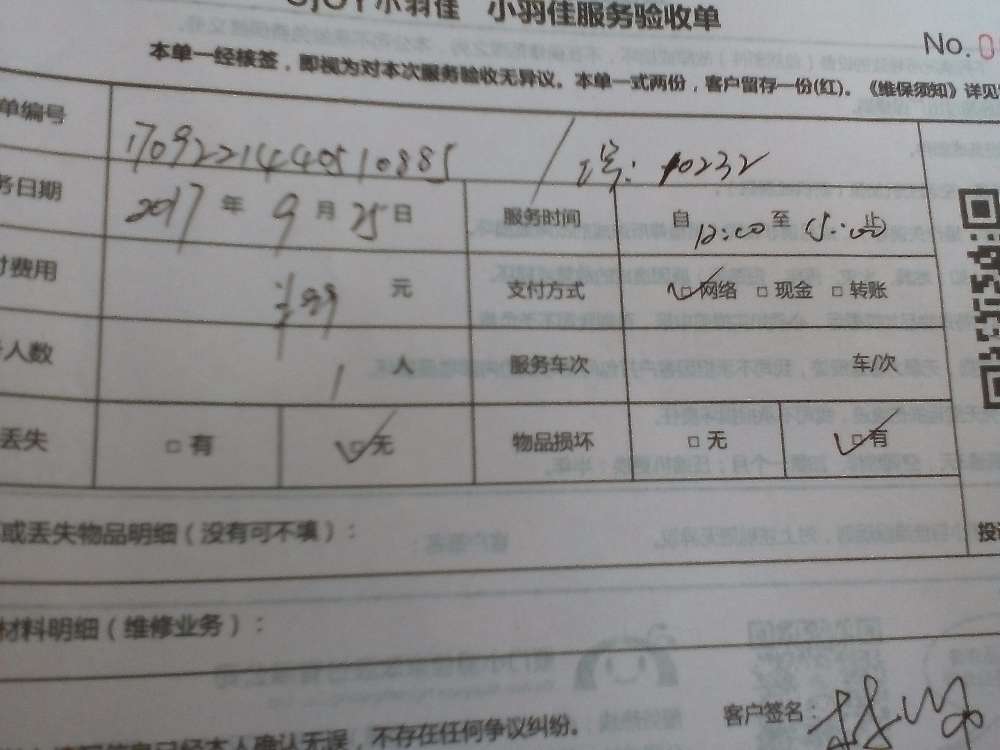 小羽佳 小羽佳服务验收单
No.0
本单一经核签，即视为对本次服务验收无异议。本单一式两份，客户留存一份(红)。《维保须知》详见
单编号 17092214440510885 / 工号：10232
务日期 2017 年 9 月 25 日 服务时间 自 12:00 至 15:00 止
付费用 ¥99 元 支付方式 ☑网络 □现金 □转账
人数 1 人 服务车次 车/次
丢失 □有 ☑无 物品损坏 □无 ☑有
或丢失物品明细（没有可不填）：
投
材料明细（维修业务）：
客户签名：
已经本人确认无误，不存在任何争议纠纷。